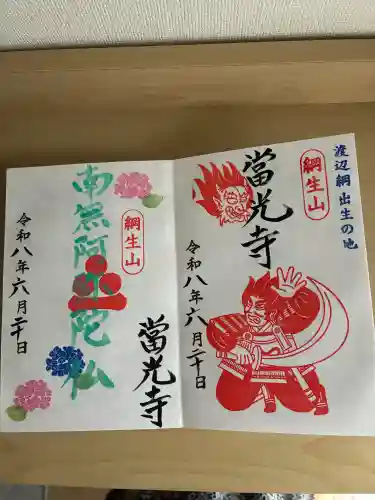 渡辺綱出生の地
綱生山
當光寺
令和八年六月二十日
綱生山
南無阿弥陀仏
當光寺
令和八年六月二十日